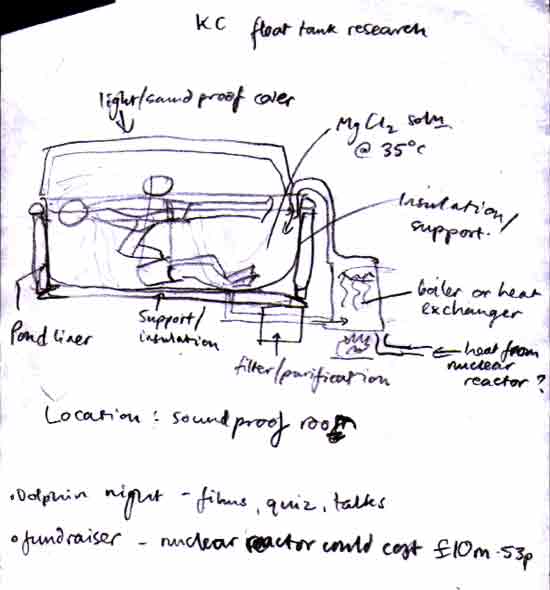 KC float tank research
light/sound proof cover
MgCl2 soln
@ 35°c
Insulation/
support.
boiler or heat
exchanger
heat from
nuclear
reactor?
Pond liner
Support/
insulation
filter/purification
Location: soundproof room
• Dolphin night - films, quiz, talks
• fundraiser - nuclear reactor could cost £10m.53p